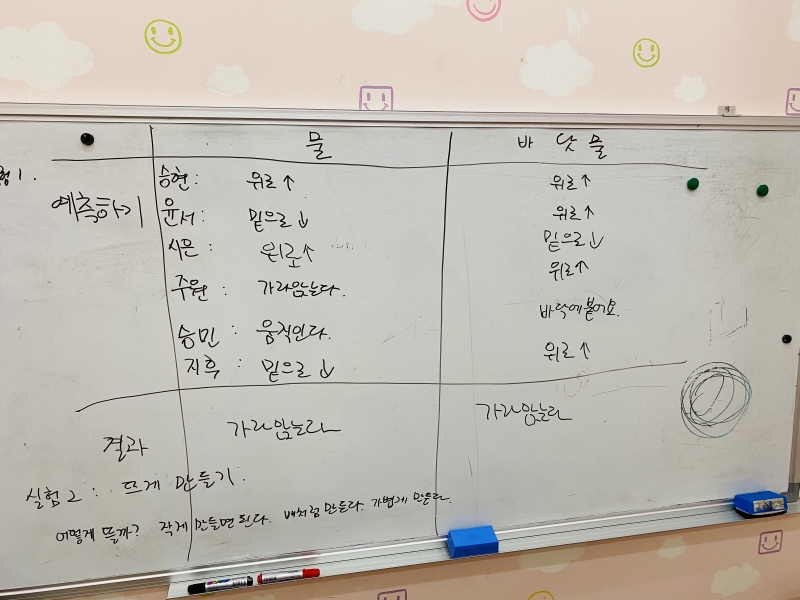 물 바닷물
험1.
예측하기
승현: 위로↑ 위로↑
윤서: 밑으로↓ 위로↑
시은: 위로↑ 밑으로↓
주원: 가라앉는다. 위로↑
승민: 움직인다. 바닥에 붙어요.
지후: 밑으로↓ 위로↑
결과 가라앉는다 가라앉는다
실험2: 뜨게 만들기.
어떻게 뜰까? 작게 만들면 된다. 배처럼 만든다. 가볍게 만든다.